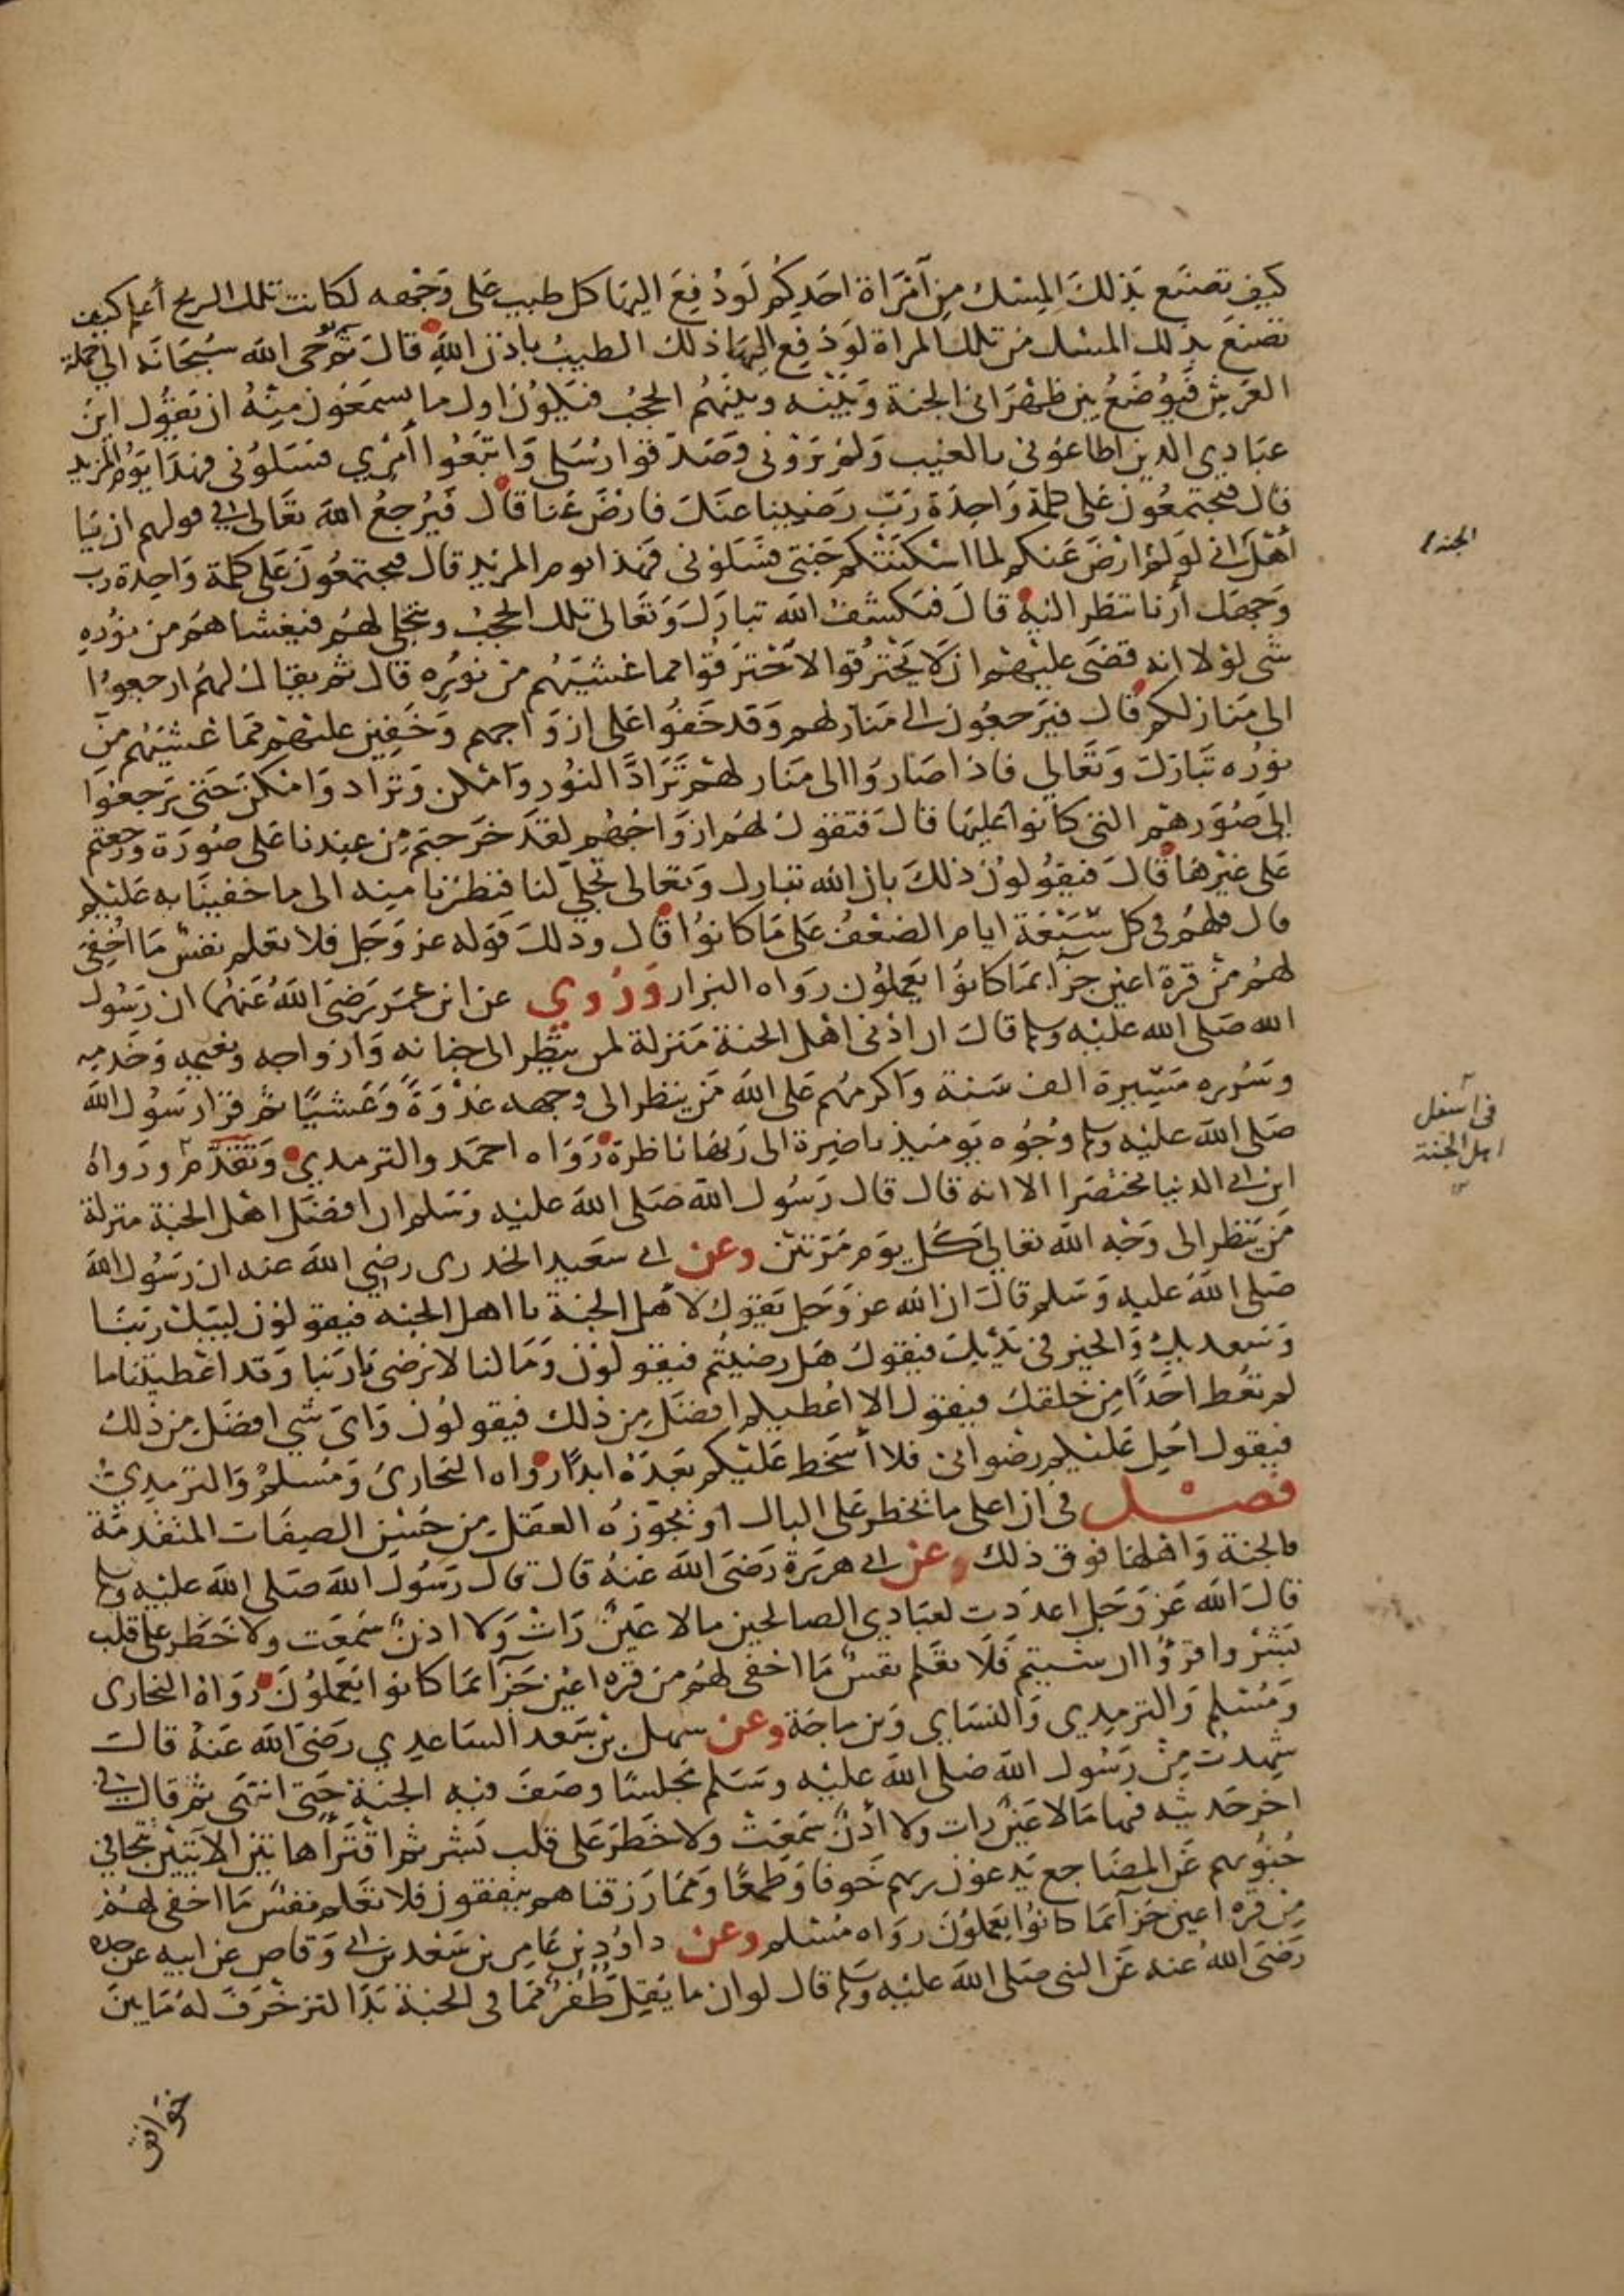 كيف تصنع بذلك المسك من امراة احدكم لو دُفع اليها كل طيب على وجه لكانت تلك الريح أعلم كيف
تصنع بذلك المسك من تلك المراة لو دُفع اليها ذلك الطيب باذن الله قال ثم يُوحى الله سبحانه الى حملة
العرش فيُوضع بين ظهرانى الجنة وبينه وبينهم الحجب فيكون اول ما يسمعون منه ان يقول اين
عبادي الذين اطاعونى بالغيب ولم يرونى وصدقوا رسلى واتبعوا أمري فسلونى فهذا يوم المزيد
قال فيجتمعون على كلمة واحدة رب رضينا عنك فارض عنا قال فيرجع الله تعالى في قولهم ان يا
أهل انى لو لم ارض عنكم لما اسكنتكم جنتى فسلونى فهذا يوم المزيد قال فيجتمعون على كلمة واحدة رب
وجهك أرنا ننظر اليه قال فيكشف الله تبارك وتعالى تلك الحجب ويتجلى لهم فيغشاهم من نوره
شى لولا انه قضى عليهم ان لا يحترقوا لاحترقوا مما غشيهم من نوره قال ثم يقال لهم ارجعوا
الى منازلكم قال فيرجعون الى منازلهم وقد خفوا على ازواجهم وخفين عليهم مما غشيهم من
نوره تبارك وتعالي فاذا صاروا الى منازلهم ترادَّ النور وامكن وتراد وامكن حتى يرجعوا
الى صورهم التى كانوا عليها قال فتقول لهم ازواجهم لقد خرجتم من عندنا على صورة ورجعتم
على غيرها قال فيقولون ذلك بان الله تبارك وتعالى تجلى لنا فنظرنا منه الى ما خفينا به عليكم
قال فلهم فى كل سبعة ايام الضعف على ما كانوا قال وذلك قوله عز وجل فلا تعلم نفس ما اخفى
لهم من قرة اعين جزآ بما كانوا يعملون رواه البزار وروي عن ابن عمر رضى الله عنهما ان رسول
الله صلى الله عليه وسلم قال ان ادنى اهل الجنة منزلة لمن ينظر الى جنانه وازواجه ونعيمه وخدمه
وسُرره مسيرة الف سنة واكرمهم على الله من ينظر الى وجهه غدوةً وعشيًا ثم قرا رسول الله
صلى الله عليه وسلم وجوه يوميذ ناضرة الى ربها ناظرة رواه احمد والترمدي وتقدم ورواه
ابن ابى الدنيا مختصرا الا انه قال قال رسول الله صلى الله عليه وسلم ان افضل اهل الجنة منزلة
من ينظر الى وجه الله تعالى كل يوم مرتين وعن ابى سعيد الخدرى رضى الله عنه ان رسول الله
صلى الله عليه وسلم قال ان الله عز وجل يقول لأهل الجنة يا اهل الجنه فيقولون لبيك ربنا
وسعديك والخير فى يديك فيقول هل رضيتم فيقولون وما لنا لا نرضى يا ربنا وقد اعطيتنا ما
لم تعط احدًا من خلقك فيقول الا اعطيكم افضل من ذلك فيقولون واى شي افضل من ذلك
فيقول احل عليكم رضوانى فلا أسخط عليكم بعده ابدًا رواه البخارى ومسلم والترمدي
فصل فى ان اعلى ما يخطر على البال او يجوزه العقل من حسن الصفات المتقدمة
فالجنة واهلها فوق ذلك وعن ابى هريرة رضى الله عنه قال قال رسول الله صلى الله عليه وسلم
قال الله عز وجل اعددت لعبادي الصالحين ما لا عين رات ولا اذن سمعت ولا خطر على قلب
بشر واقرؤا ان شيتم فلا تعلم نفس ما اخفى لهم من قره اعين جزآ بما كانوا يعملون رواه البخارى
ومسلم والترمدي والنساي وبن ماجة وعن سهل بن سعد الساعدي رضى الله عنه قال
شهدت من رسول الله صلى الله عليه وسلم مجلسًا وصف فيه الجنة حتى انتهى ثم قال فى
اخر حديثه فيها ما لا عين رات ولا أذن سمعت ولا خطر على قلب بشر ثم اقترأ هاتين الآيتين تتجافى
جنوبهم عن المضاجع يدعون ربهم خوفا وطمعًا ومما رزقناهم ينفقون فلا تعلم نفس ما اخفى لهم
من قره اعين جزآ بما كانوا يعملون رواه مسلم وعن داود بن عامر بن سعد بن ابى وقاص عن ابيه عن جده
رضى الله عنه عن النبى صلى الله عليه وسلم قال لو ان ما يقل ظفر مما فى الجنة بدا لتزخرف له ما بين
خوافق
الجنه
فى اسفل
اهل الجنة